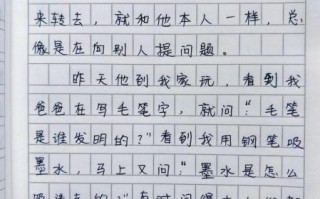 来转去，就和他本人一样，总
像是在向别人提问题。
昨天他到我家玩，看到我
爸爸在写毛笔字，就问：“毛笔
是谁发明的？”看到我用钢笔吸
墨水，马上又问：“墨水是怎么